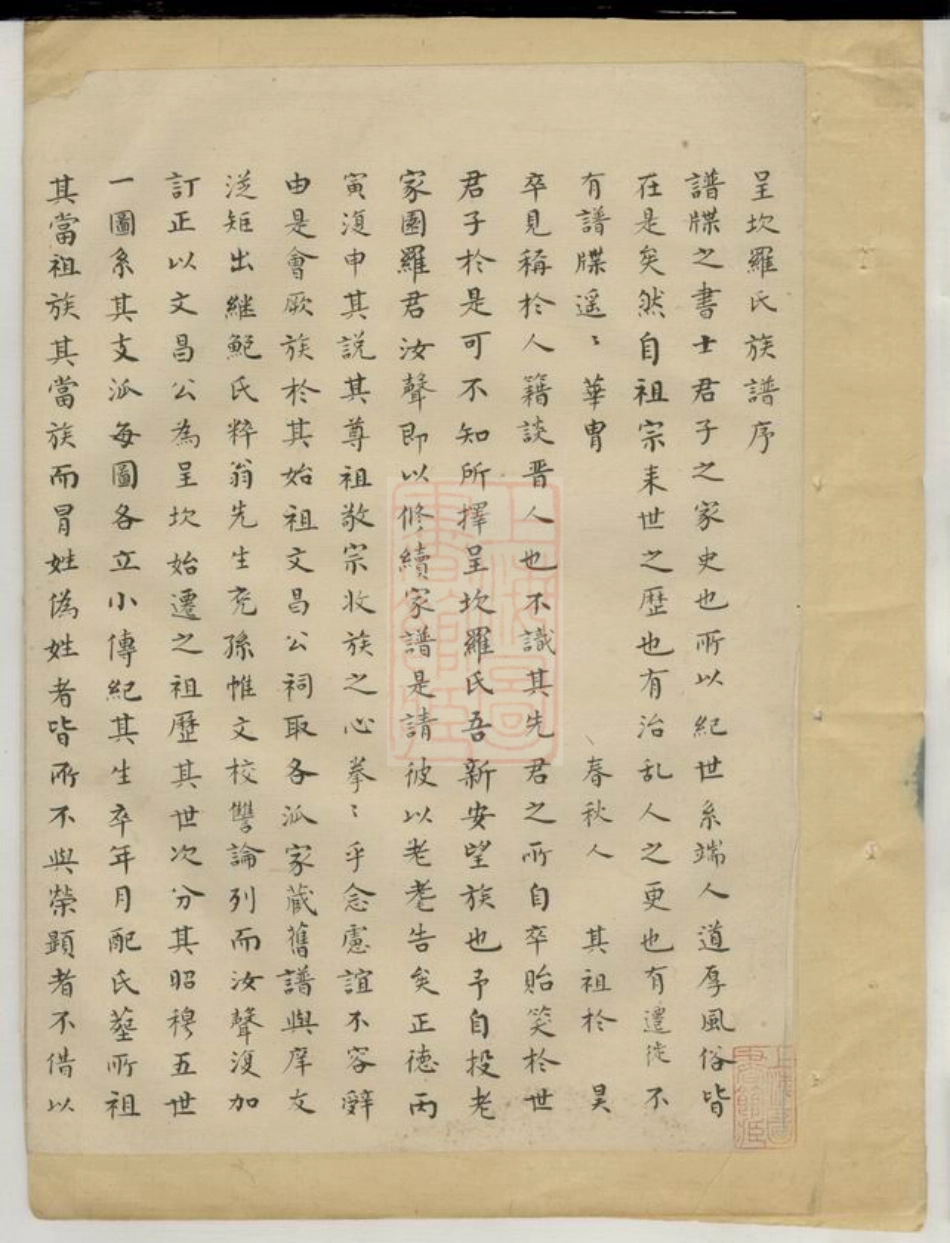 呈坎羅氏族譜序
譜牒之書士君子之家史也所以紀世系端人道厚風俗皆
在是矣然自祖宗来世之歷也有治乱人之更也有遷徙不
有譜牒遥〻華胄 春秋人 其祖於 昊
卒見稱於人籍談晋人也不識其先君之所自卒貽笑於世
君子於是可不知所擇呈坎羅氏吾新安望族也予自投老
家園羅君汝聲即以修續家譜是請彼以老耄告矣正德丙
寅復申其説其尊祖敬宗收族之心拳〻乎念慮誼不容辭
由是會厥族於其始祖文昌公祠取各派家蔵舊譜與庠友
從矩出継鮑氏粹翁先生克孫惟文校讐論列而汝聲復加
訂正以文昌公為呈坎始遷之祖歷其世次分其昭穆五世
一圖系其支派每圖各立小傳紀其生卒年月配氏墓所祖
其當祖族其當族而冒姓偽姓者皆所不與榮顕者不借以